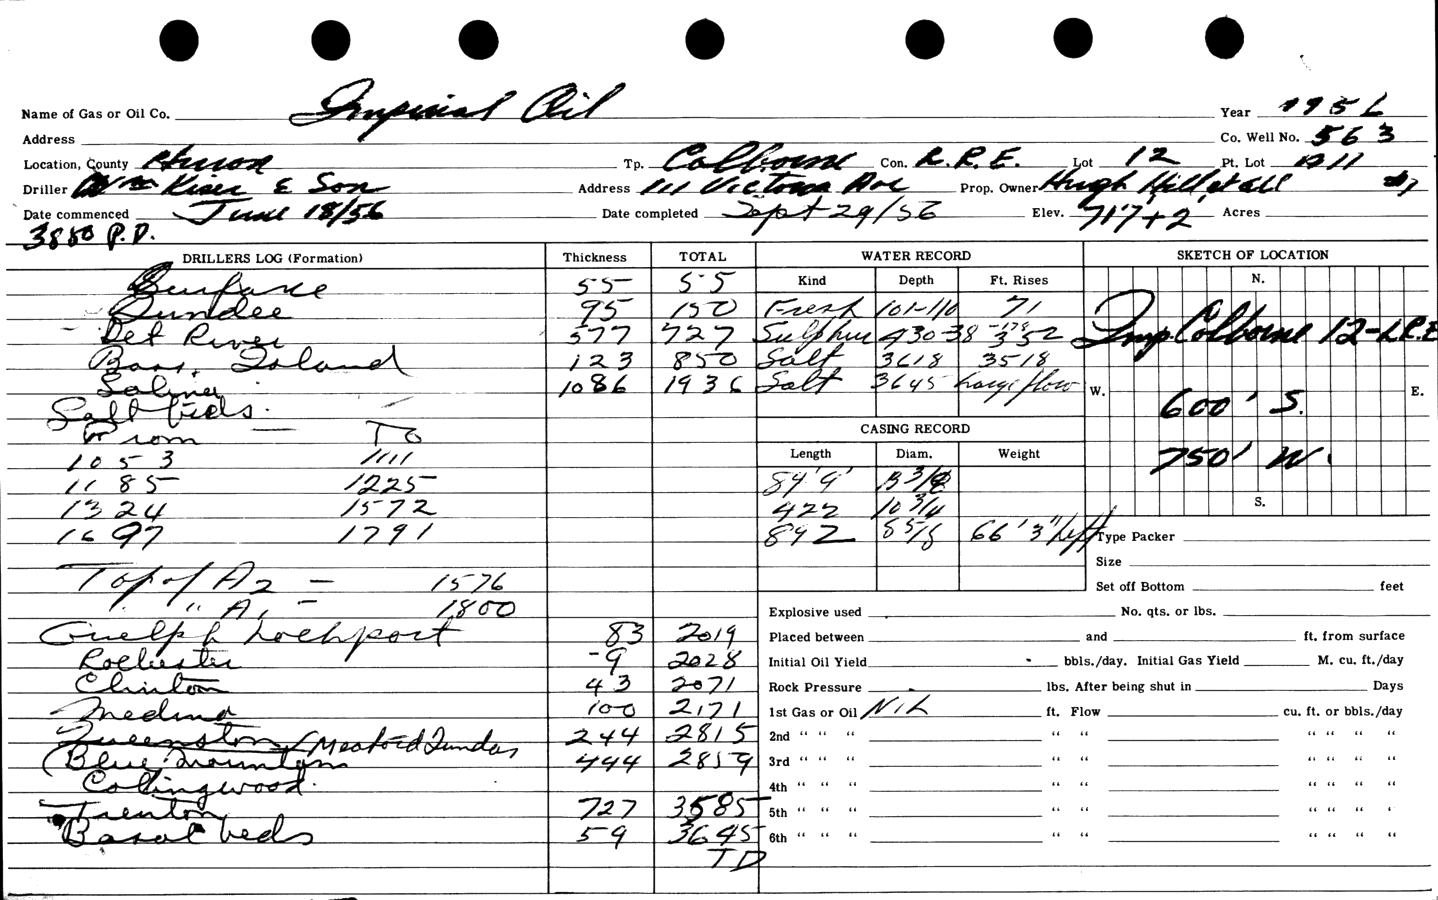 Name of Gas or Oil Co. Imperial Oil Year 1956
Address Co. Well No. 563
Location, County Huron Tp. Colborne Con. L.R.E. Lot 12 Pt. Lot
Driller Wm Kiser & Son Address 111 Victoria Ave Prop. Owner Hugh Hill et al
Date commenced June 18/56 Date completed Sept 29/56 Elev. 717'+2' Acres
3880 P.D.
DRILLERS LOG (Formation) Thickness TOTAL WATER RECORD SKETCH OF LOCATION
Kind Depth Ft. Rises N.
Surface 55 55
Dundee 95 150 Fresh 101-110 71
Det River 577 727 Sulphur 430-38 -178 352 Imp. Colborne 12-L.R.E
Bass Island 123 850 Salt 3618 3518
Salina 1086 1936 Salt 3645 large flow W. E.
Salt beds. 600' S.
From To CASING RECORD
1053 1111 Length Diam. Weight 750' W.
1185 1225 84'9" 13 3/8
1324 1572 422 10 3/4 S.
1697 1791 892 8 5/8 66'3" left Type Packer
Size
Top of A2 – 1576 Set off Bottom feet
" " A1 – 1800 Explosive used No. qts. or lbs.
Guelph Lockport 83 2019 Placed between and ft. from surface
Rochester 9 2028 Initial Oil Yield bbls./day. Initial Gas Yield M. cu. ft./day
Clinton 43 2071 Rock Pressure lbs. After being shut in Days
Medina 100 2171 1st Gas or Oil Nil ft. Flow cu. ft. or bbls./day
Queenston (Meaford Dundas 244 2815 2nd " " " " " " " " "
(Blue Mountain 444 2859 3rd " " " " " " " " "
Collingwood. 4th " " " " " " " " "
Trenton 727 3585 5th " " " " " " " " "
Basal beds 59 3645 6th " " " " " " " " "
TD